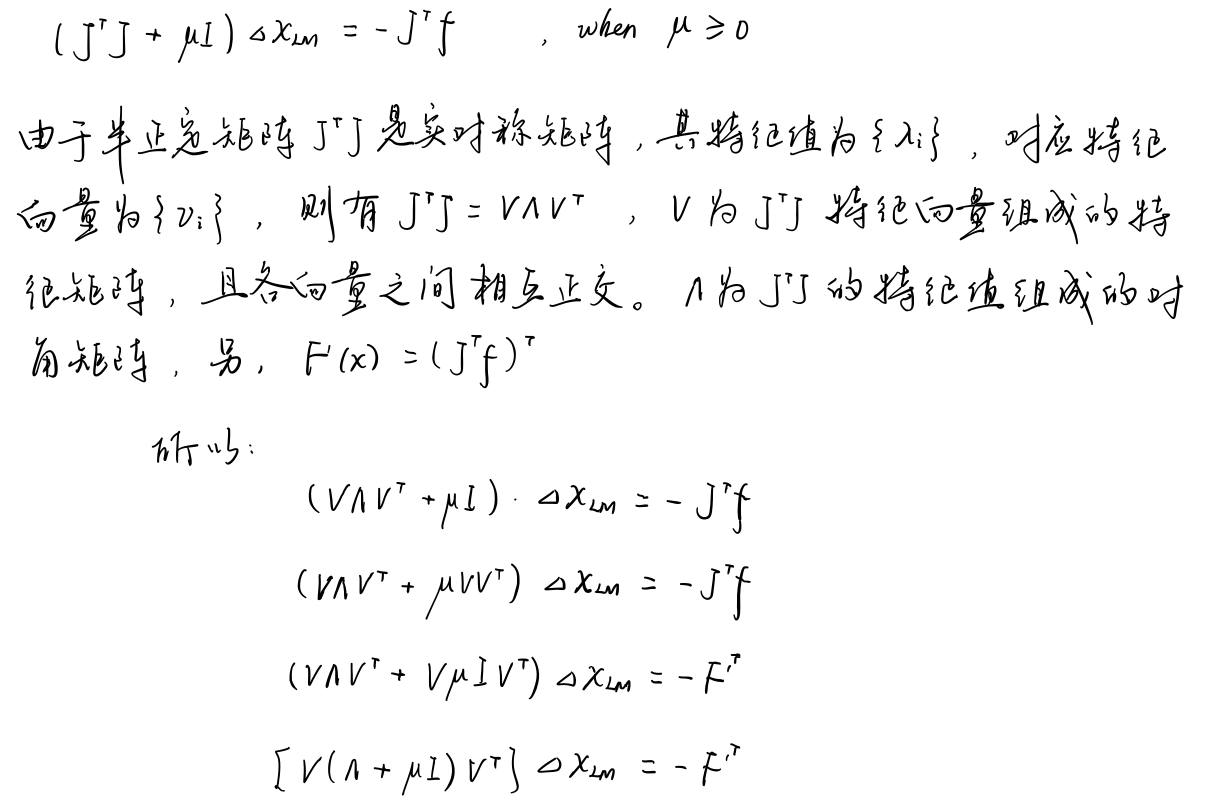 (JᵀJ + μI) ΔX_LM = -Jᵀf , when μ ≥ 0
由于半正定矩阵 JᵀJ 是实对称矩阵,其特征值为 {λᵢ} , 对应特征
向量为 {vᵢ} , 则有 JᵀJ = VΛVᵀ , V 为 JᵀJ 特征向量组成的特
征矩阵, 且各向量之间相互正交。Λ为 JᵀJ 的特征值组成的对
角矩阵, 另, F'(x) = (Jᵀf)ᵀ
所以:
(VΛVᵀ + μI) · ΔX_LM = - Jᵀf
(VΛVᵀ + μVVᵀ) ΔX_LM = -Jᵀf
(VΛVᵀ + VμIVᵀ) ΔX_LM = -F'ᵀ
[V(Λ + μI)Vᵀ] ΔX_LM = -F'ᵀ